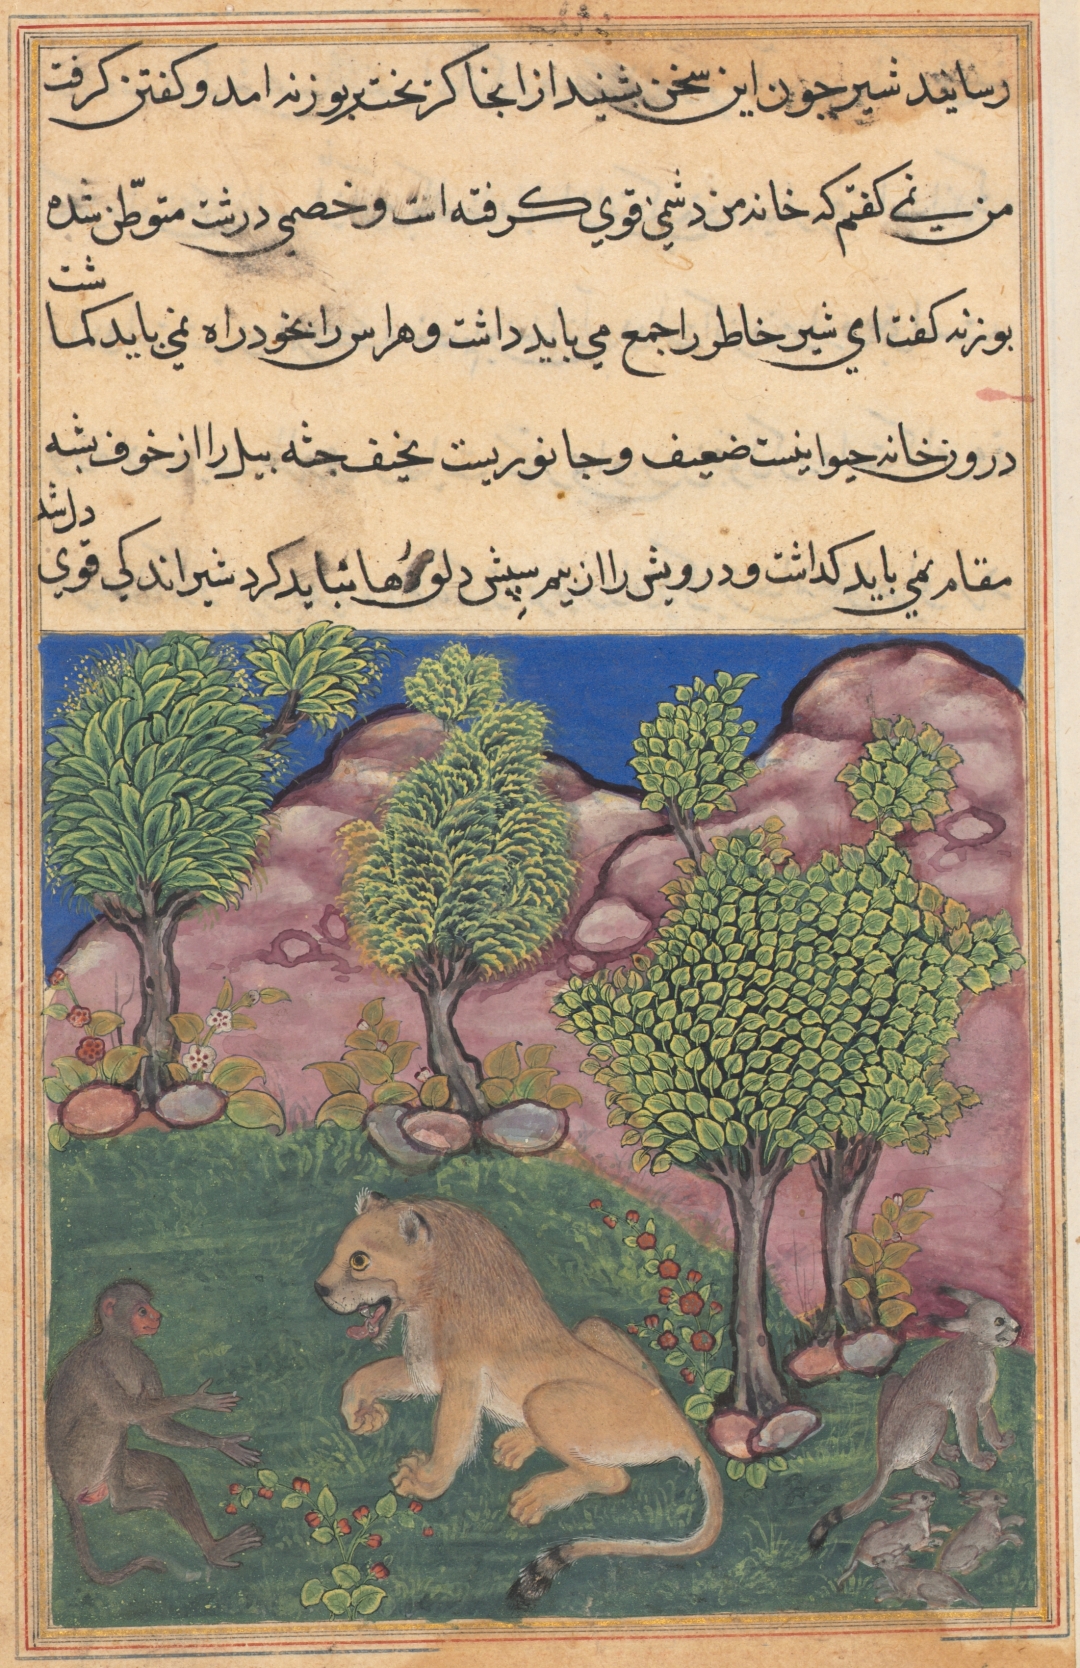 رسانید شیر جون این سخن بشنید از انجا کریخت بر بوزنه امد و کفتن کرفت
من نمی کفتم که خانه من دشمنی قوی کرفته است و خصمی درشت متوطّن شده
شت
بوزنه کفت ای شیر خاطر را جمع می باید داشت و هراس را بخود راه نمی باید کما
درون خانه حیوانیست ضعیف و جانوریست نحیف جثه بیل را از خوف بشه
دل شد
مقام نمی باید کداشت و درویش را از بیم سپش دلو ها نباید کرد شیر اندکی قوی